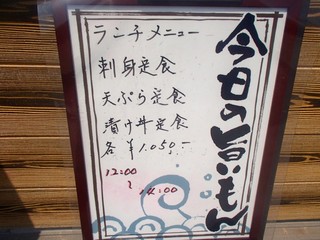 今日の旨いもん
ランチメニュー
刺身定食
天ぷら定食
漬け丼定食
各￥1,050-
12:00
〜
14:00